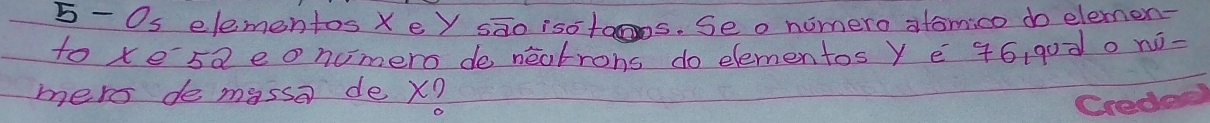 5 - Os elementos X e Y são isótoons. Se o número atômico do elemen-
to x e 52 e o número de nêutrons do elementos y é 76, qual o nú-
mero de massa de X?